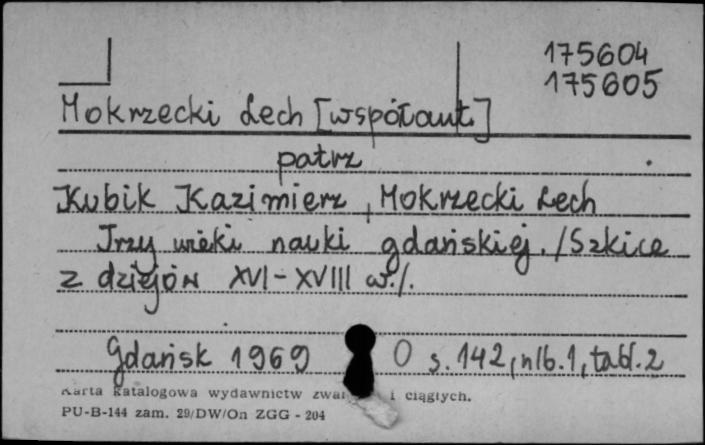 175604
175605
Mokrzecki Lech [współaut.]
patrz
Kubik Kazimierz, Mokrzecki Lech
Trzy wieki nauki gdańskiej. /Szkice
z dziejów XVI-XVIII w./.
Gdańsk 1969 O s. 142, nlb. 1, tabl. 2
Karta katalogowa wydawnictw i ciągłych.
PU-B-144 zam. 29/DW/On ZGG - 204